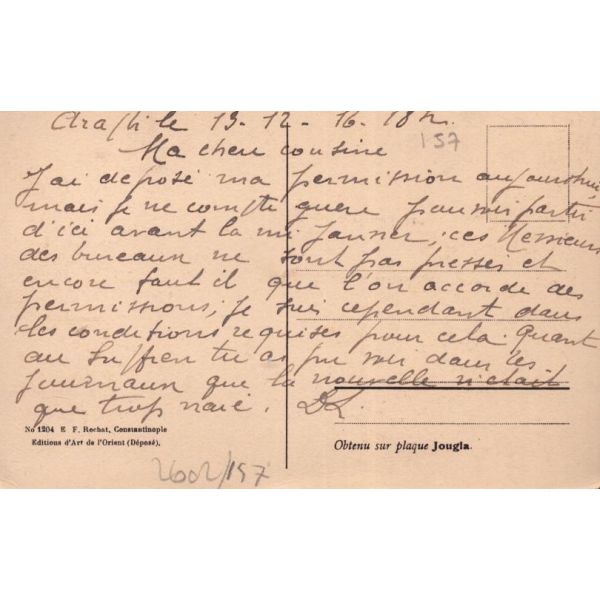 le 13-12-16. 18h.
157
Ma chere cousine
J'ai deposé ma permission aujourd'hui
mais je ne compte guere pouvoir partir
d'ici avant la mi Janvier, ces Messieurs
des bureaux ne sont pas pressés et
encore faut il que l'on accorde des
permissions, je suis cependant dans
les conditions requises pour cela. Quant
au Suffren tu as pu voir dans les
journaux que la nouvelle n'etait
que trop vraie.
No 1204 E. F. Rochat, Constantinople
Editions d'Art de l'Orient (Déposé).
Obtenu sur plaque Jougla.
2602/157